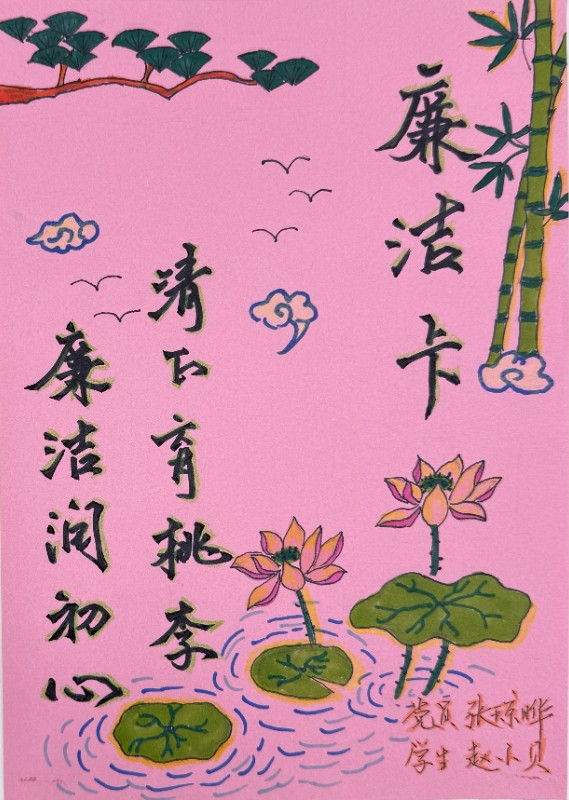 廉洁卡
清正育桃李
廉洁润初心
党员 张琼晔
学生 赵小贝